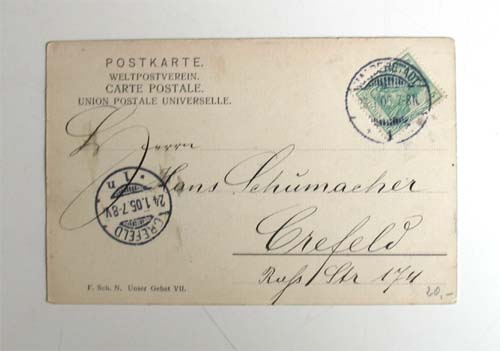 POSTKARTE.
WELTPOSTVEREIN.
CARTE POSTALE.
UNION POSTALE UNIVERSELLE.
HALBERSTADT
1.05. 7-8V.
1
Herrn
Hans Schumacher
Crefeld
Str 174
CREFELD
24.1.05.7-8V.
1 n
F. Sch. N. Unser Gebet VII.
20,-